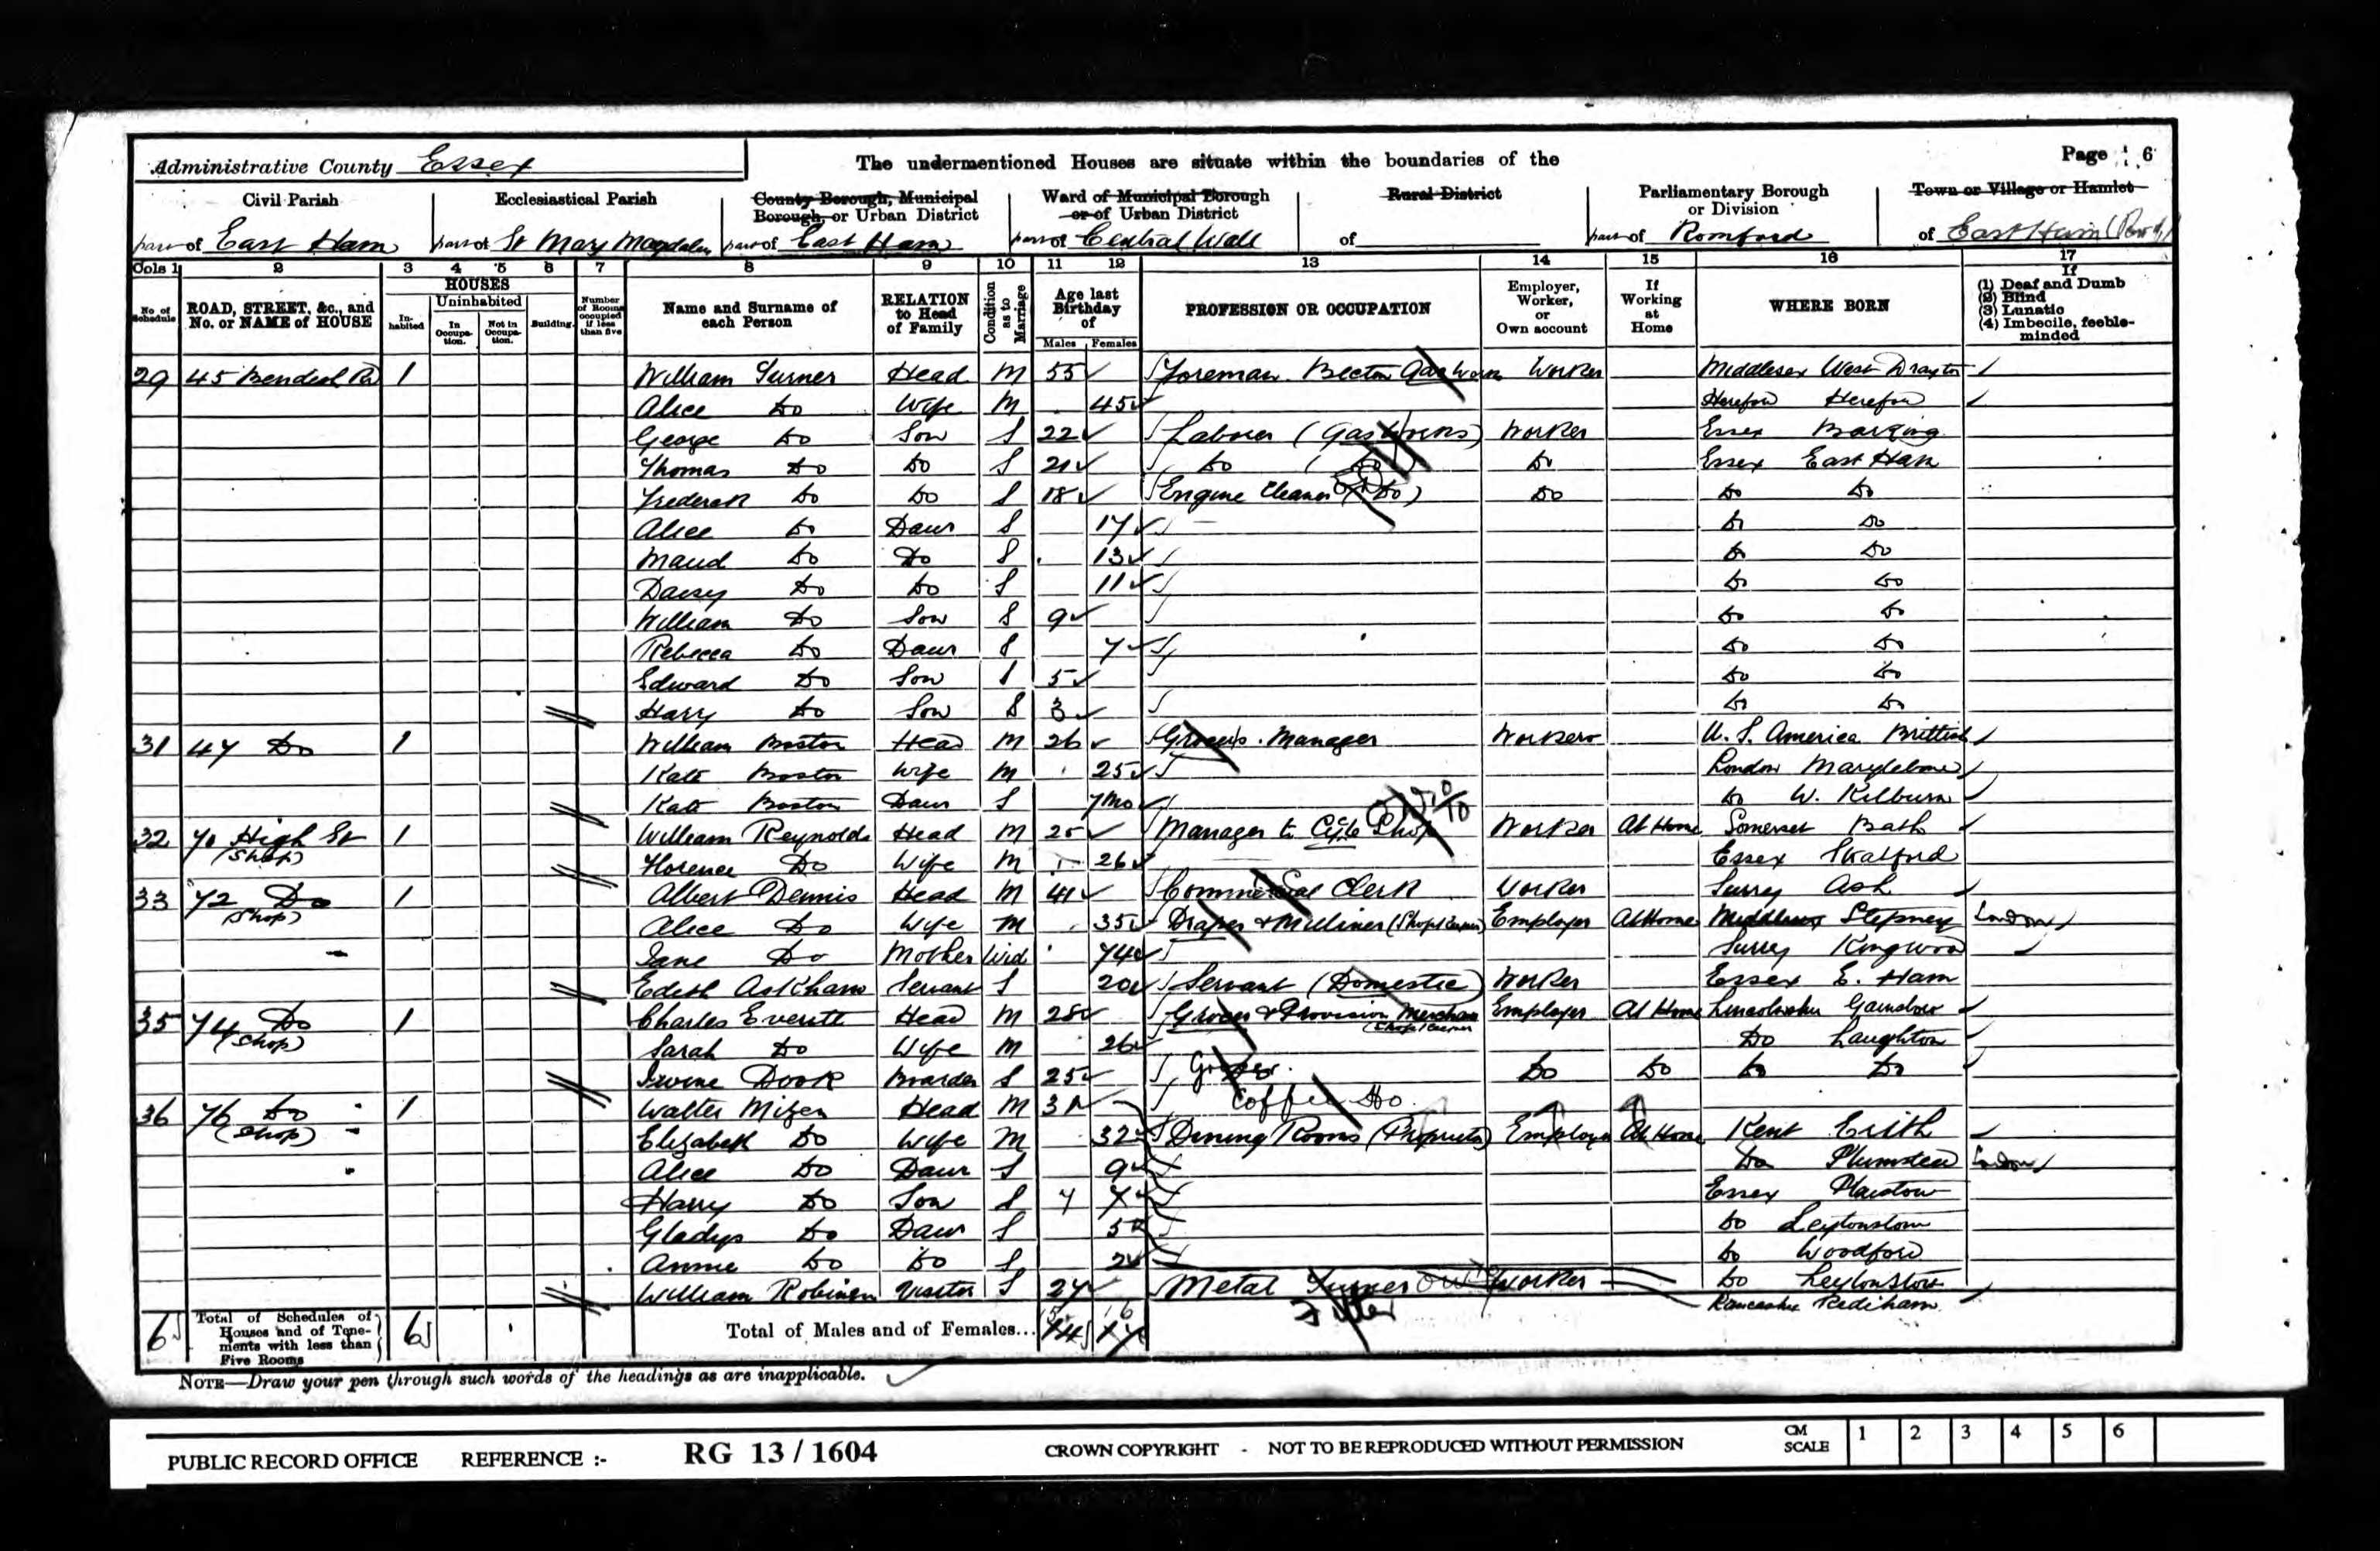 Administrative County Essex
The undermentioned Houses are situate within the boundaries of the
Page 6
Civil Parish
Ecclesiastical Parish
County Borough, Municipal Borough, or Urban District
Ward of Municipal Borough or of Urban District
Rural District
Parliamentary Borough or Division
Town or Village or Hamlet
part of East Ham
part of St Mary Magdalen
part of East Ham
part of Central Wall
of
part of Romford
of East Ham
Cols 1 2 3 4 5 6 7 8 9 10 11 12 13 14 15 16 17
No of Schedule
ROAD, STREET, &c., and No. or NAME of HOUSE
HOUSES
Inhabited
Uninhabited
In Occupation.
Not in Occupation.
Building.
Number of Rooms occupied if less than five
Name and Surname of each Person
RELATION to Head of Family
Condition as to Marriage
Age last Birthday of
Males Females
PROFESSION OR OCCUPATION
Employer, Worker, or Own account
If Working at Home
WHERE BORN
If (1) Deaf and Dumb (2) Blind (3) Lunatic (4) Imbecile, feeble-minded
29 45 Bendish Rd 1 William Turner Head M 55 Foreman Becton Gas Works Worker Middlesex West Drayton
Alice Do Wife M 45 Hereford Hereford
George Do Son S 22 Labourer (Gas Works) Worker Essex Barking
Thomas Do Do S 21 Do (Do) Do Essex East Ham
Frederick Do Do S 18 Engine Cleaner (Do) Do Do Do
Alice Do Daur S 17 Do Do
Maud Do Do S 13 Do Do
Daisy Do Do S 11 Do Do
William Do Son S 9 Do Do
Rebecca Do Daur S 7 Do Do
Edward Do Son S 5 Do Do
Harry Do Son S 3 Do Do
31 47 Do 1 William Boston Head M 26 Grocers Manager Worker U. S. America Brittish
Kate Boston Wife M 25 London Marylebone
Kate Boston Daur S 7 Mo Do W. Kilburn
32 70 High St (Shop) 1 William Reynolds Head M 25 Manager to Cycle Shop Worker At Home Somerset Bath
Florence Do Wife M 26 Essex Stratford
33 72 Do (Shop) 1 Albert Dennis Head M 41 Commercial Clerk Worker Surrey Ash
Alice Do Wife M 35 Draper & Milliner (Shop Keeper) Employer At Home Middlesex Stepney London
Jane Do Mother Wid 74 Surrey Kingwood
Edith Askham Servant S 20 Servant (Domestic) Worker Essex E. Ham
35 74 Do (Shop) 1 Charles Everett Head M 28 Grocer & Provision Merchan (Shop Keeper Employer At Home Lincolnshir Gainsboro
Sarah Do Wife M 26 Do Laughton
Dook Boarder S 25 Grocer Do Do Do Do
36 76 Do (Shop) 1 Walter Mizen Head M 31 Coffee Ho
Elizabeth Do Wife M 32 Dining Rooms (Proprietor) Employer At Home Kent Erith
Alice Do Daur S 9 Do Plumstead London
Harry Do Son S 7 Essex Plaistow
Gladys Do Daur S 5 Do Leytonstone
Annie Do Do S 2 Do Woodford
William Robinson Visitor S 27 Metal Turner Worker Do Leytonstone
Fitter
Lancashire Pediham
6 Total of Schedules of Houses and of Tenements with less than Five Rooms 6
Total of Males and of Females... 14 17
15 16
NOTE—Draw your pen through such words of the headings as are inapplicable.
PUBLIC RECORD OFFICE REFERENCE :- RG 13 / 1604 CROWN COPYRIGHT - NOT TO BE REPRODUCED WITHOUT PERMISSION CM SCALE 1 2 3 4 5 6